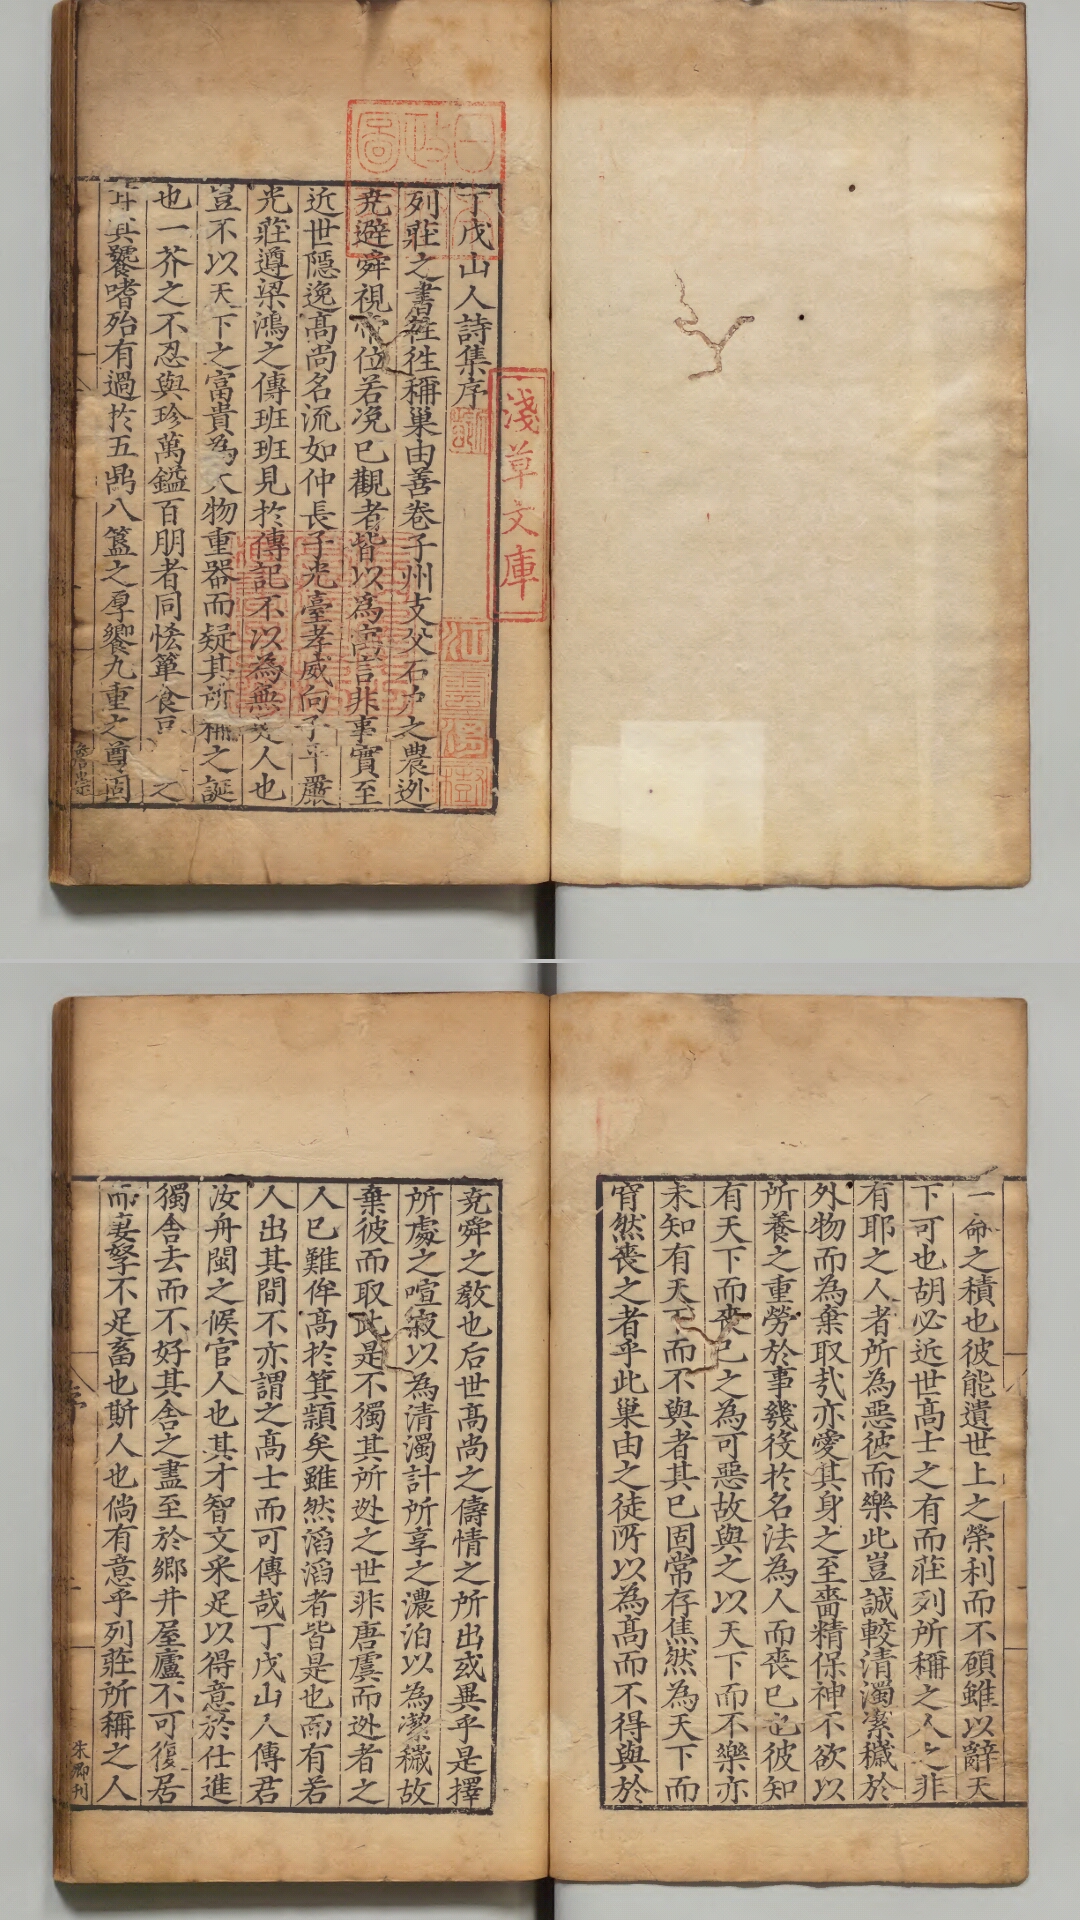 丁戊山人詩集序
列莊之書徃徃稱巢由善卷子州支父石户之農迯
堯避舜視帝位若凂已觀者皆以爲寓言非事實至
近世隱逸髙尚名流如仲長子光臺孝威向子平嚴
光莊遵梁鴻之傳班班見於傳記不以為無是人也
豈不以天下之富貴為大物重器而疑其所稱之誕
也一芥之不忍與珍萬鎰百朋者同恡簞食豆之
丼其饕嗜殆有過於五鼎八簋之厚饗九重之尊固
一命之積也彼能遺世上之榮利而不頋雖以辭天
下可也胡必近世髙士之有而莊列所稱之人之非
有耶之人者所為惡彼而樂此豈誠較清濁絜穢於
外物而為棄取㢤亦愛其身之至嗇精保神不欲以
所養之重勞於事幾役於名法為人而喪已也彼知
有天下而喪已之為可惡故與之以天下而不樂亦
未知有天下而不與者其已固常存焦然為天下而
窅然喪之者乎此巢由之徒所以為髙而不得與於
堯舜之教也后世髙尚之儔情之所出或異乎是擇
所處之喧寂以為清濁計所享之濃泊以為潔穢故
棄彼而取此是不獨其所迯之世非唐虞而迯者之
人已難侔髙於箕潁矣雖然滔滔者皆是也而有若
人出其間不亦謂之髙士而可傳哉丁戊山人傳君
汝舟閩之候官人也其才智文采足以得意於仕進
獨舍去而不好其舍之盡至於鄉井屋廬不可復居
而妻孥不足畜也斯人也倘有意乎列莊所稱之人
朱卿刊
淺草文庫
江雲渭樹